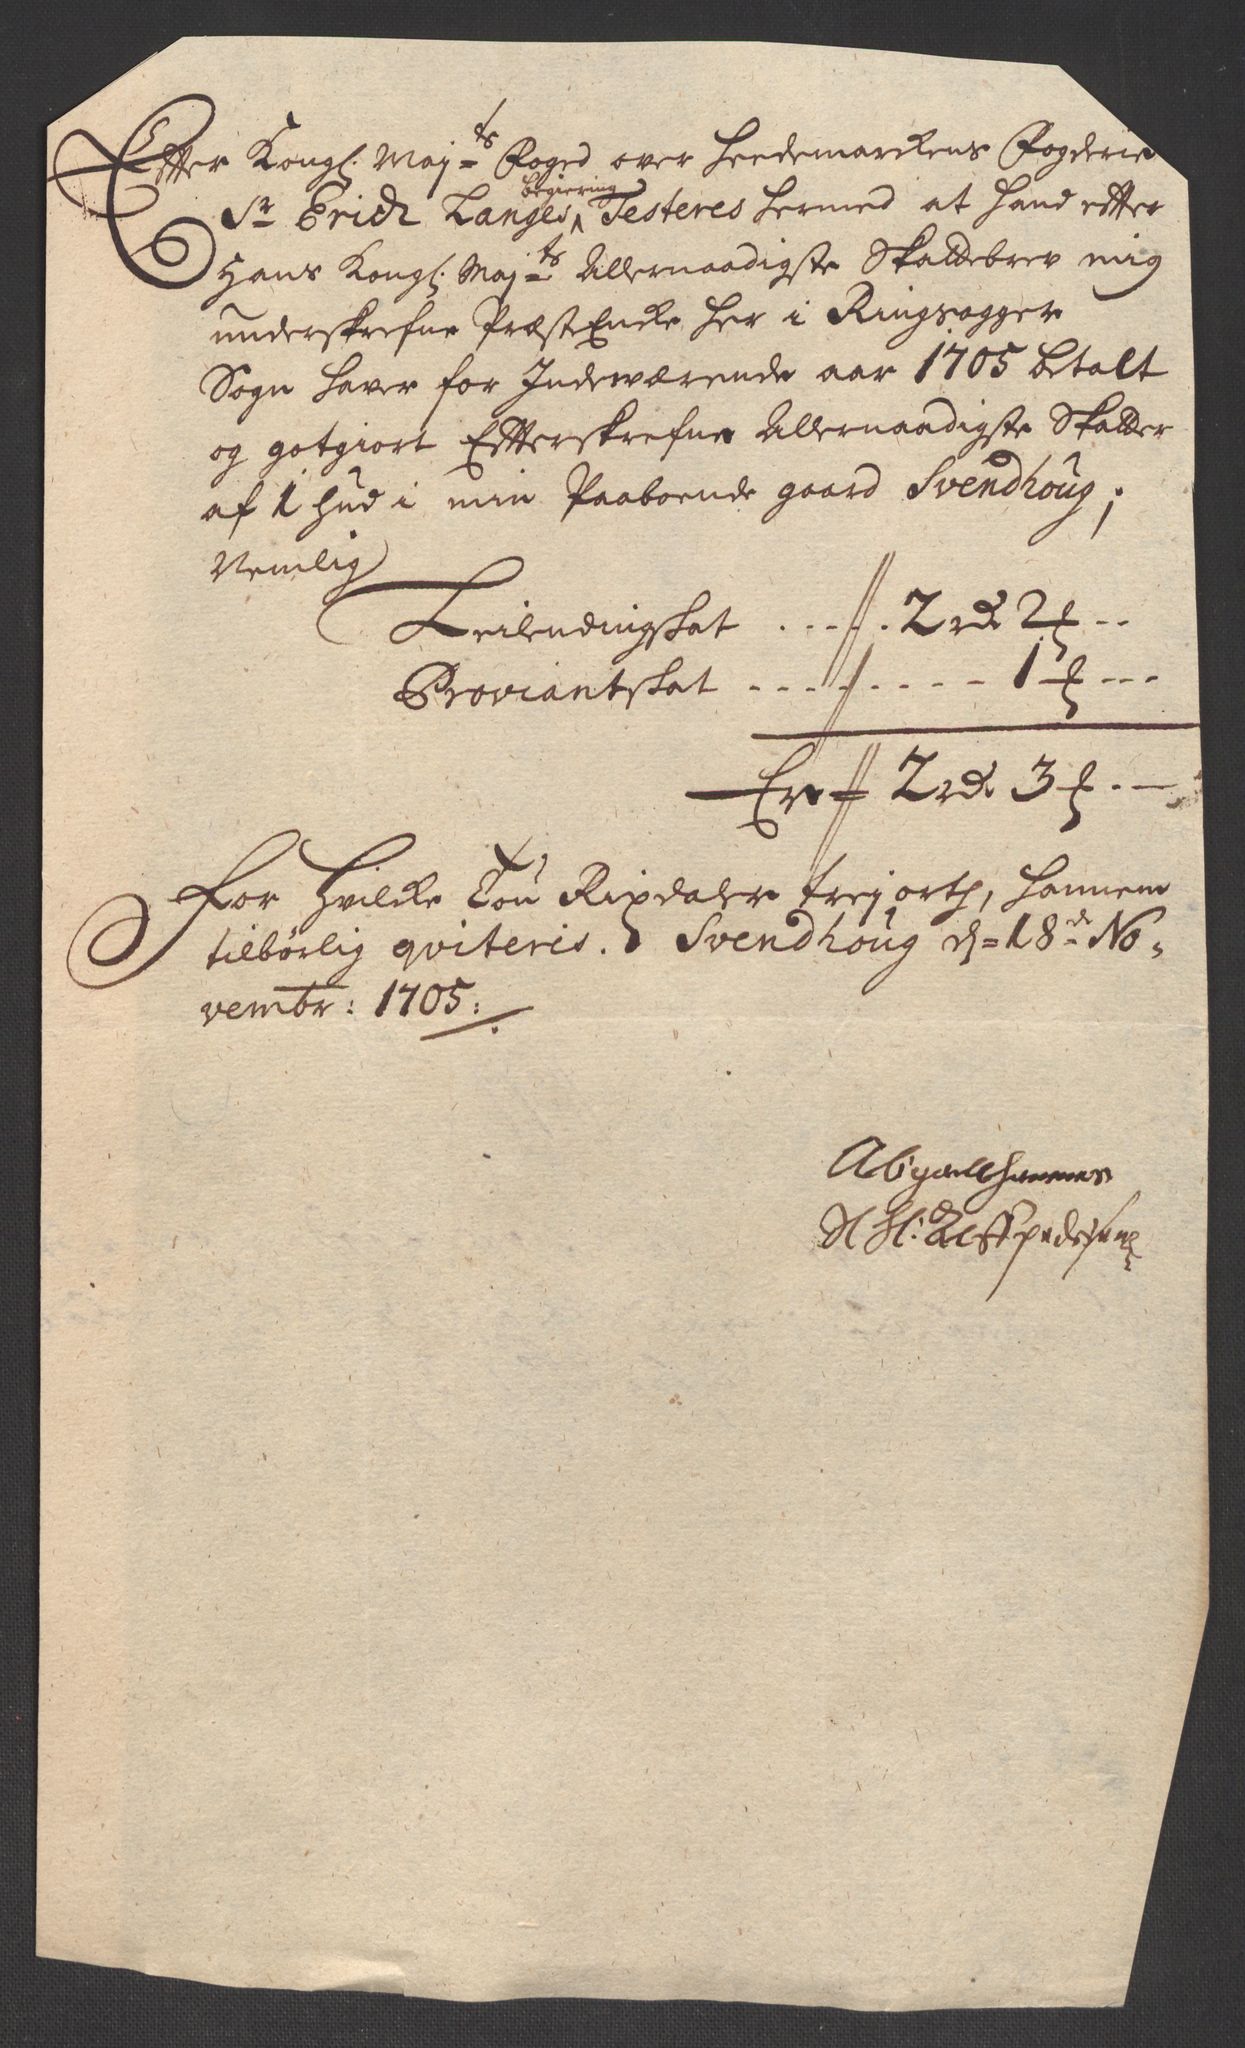 Effter Kongl. Maj=ts Foged over Heedemarckens Fogderie
Sr Erich Langes begiering Testeres hermed at hand effter
Hans Kongl. Maj=ts Allernaadigste Skattebrev mig
underskrefne PræstEncke her i Ringsagger
Sogn haver for Indewærende aar 1705 betalt
og gotgiort Effterskrefne Allernaadigste Skatter
af 1 hud i min Paaboende gaard Svendhoug;
Nemlig
Leilendingskat ..... 2 rdr 2 ort --
Proviantskat ......... 1 ort ---
Er 2 rdr 3 ort . --
For Hvilcke Tou Rixdaler trej orth, hannem
tilbørlig qviteris. Svendhoug d=18de No=
vembr: 1705:
Abigaell
Sl Hr: